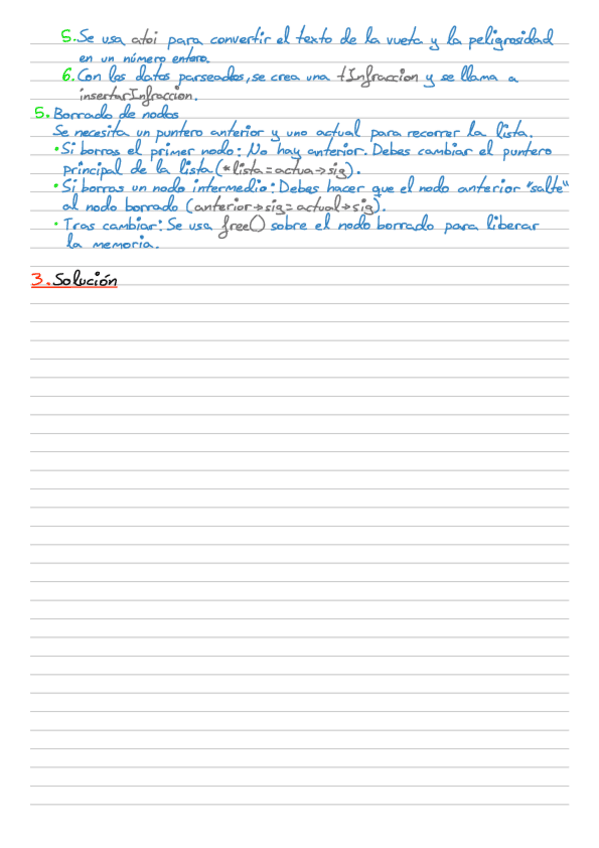 5. Se usa atoi para convertir el texto de la vueta y la peligrosidad
en un número entero.
6. Con los datos parseados, se crea una tInfraccion y se llama a
insertarInfraccion.
5. Borrado de nodos
Se necesita un puntero anterior y uno actual para recorrer la lista.
• Si borras el primer nodo: No hay anterior. Debes cambiar el puntero
principal de la lista (*lista = actua→sig).
• Si borras un nodo intermedio: Debes hacer que el nodo anterior "salte"
al nodo borrado (anterior→sig = actual→sig).
• Tras cambiar: Se usa free() sobre el nodo borrado para liberar
la memoria.
3. Solución